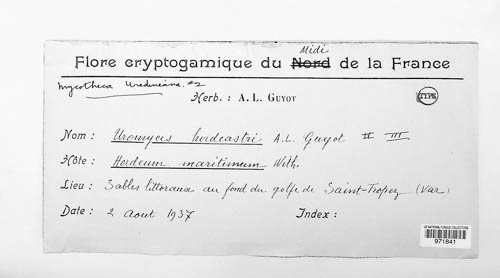 Midi
Flore cryptogamique du Nord de la France
Mycotheca Uredineana. #2
Herb. : A. L. GUYOT
TYPE
Nom : Uromyces hordeastri A. L. Guyot II III
Hôte : Hordeum maritimum With.
Lieu : Sables littoraux au fond du golfe de Saint-Tropez (Var)
Date : 2 Aout 1937 Index :
US NATIONAL FUNGUS COLLECTIONS
971841